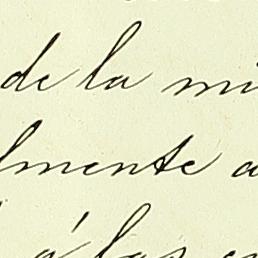 de la mi
lmente a
á las